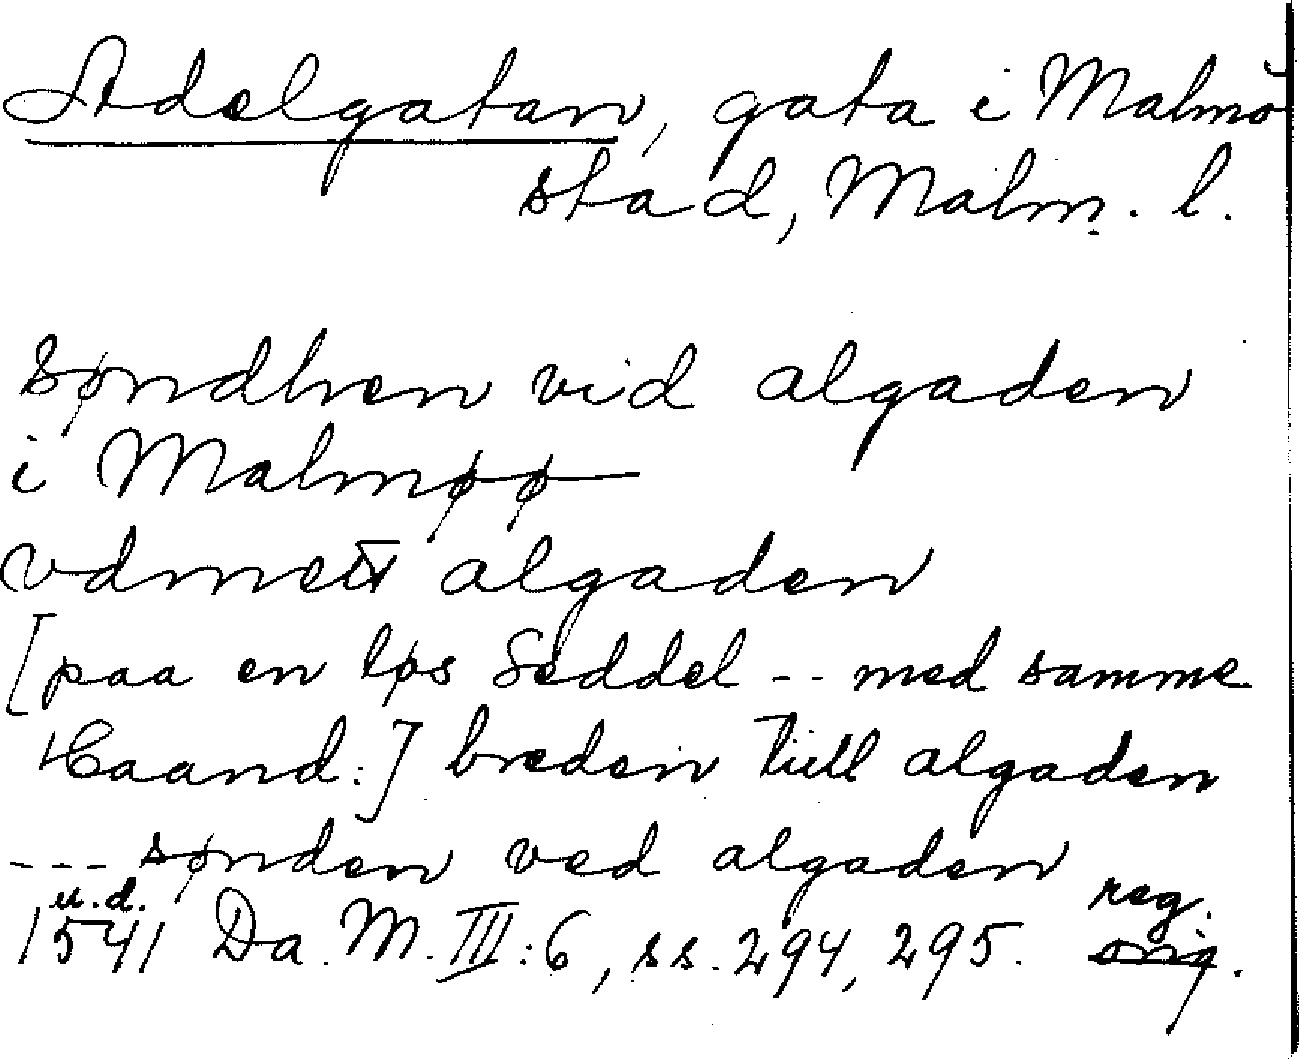 Adelgatan, gata i Malmö
stad, Malm. l.
søndhen vid algaden
i Malmøø
vdmett algaden
[paa en løs Seddel -- med samme
Haand:] breden till algaden
--- sønden ved algaden
u.d. reg.
1541 Da. M. III:6, ss. 294, 295. orig.